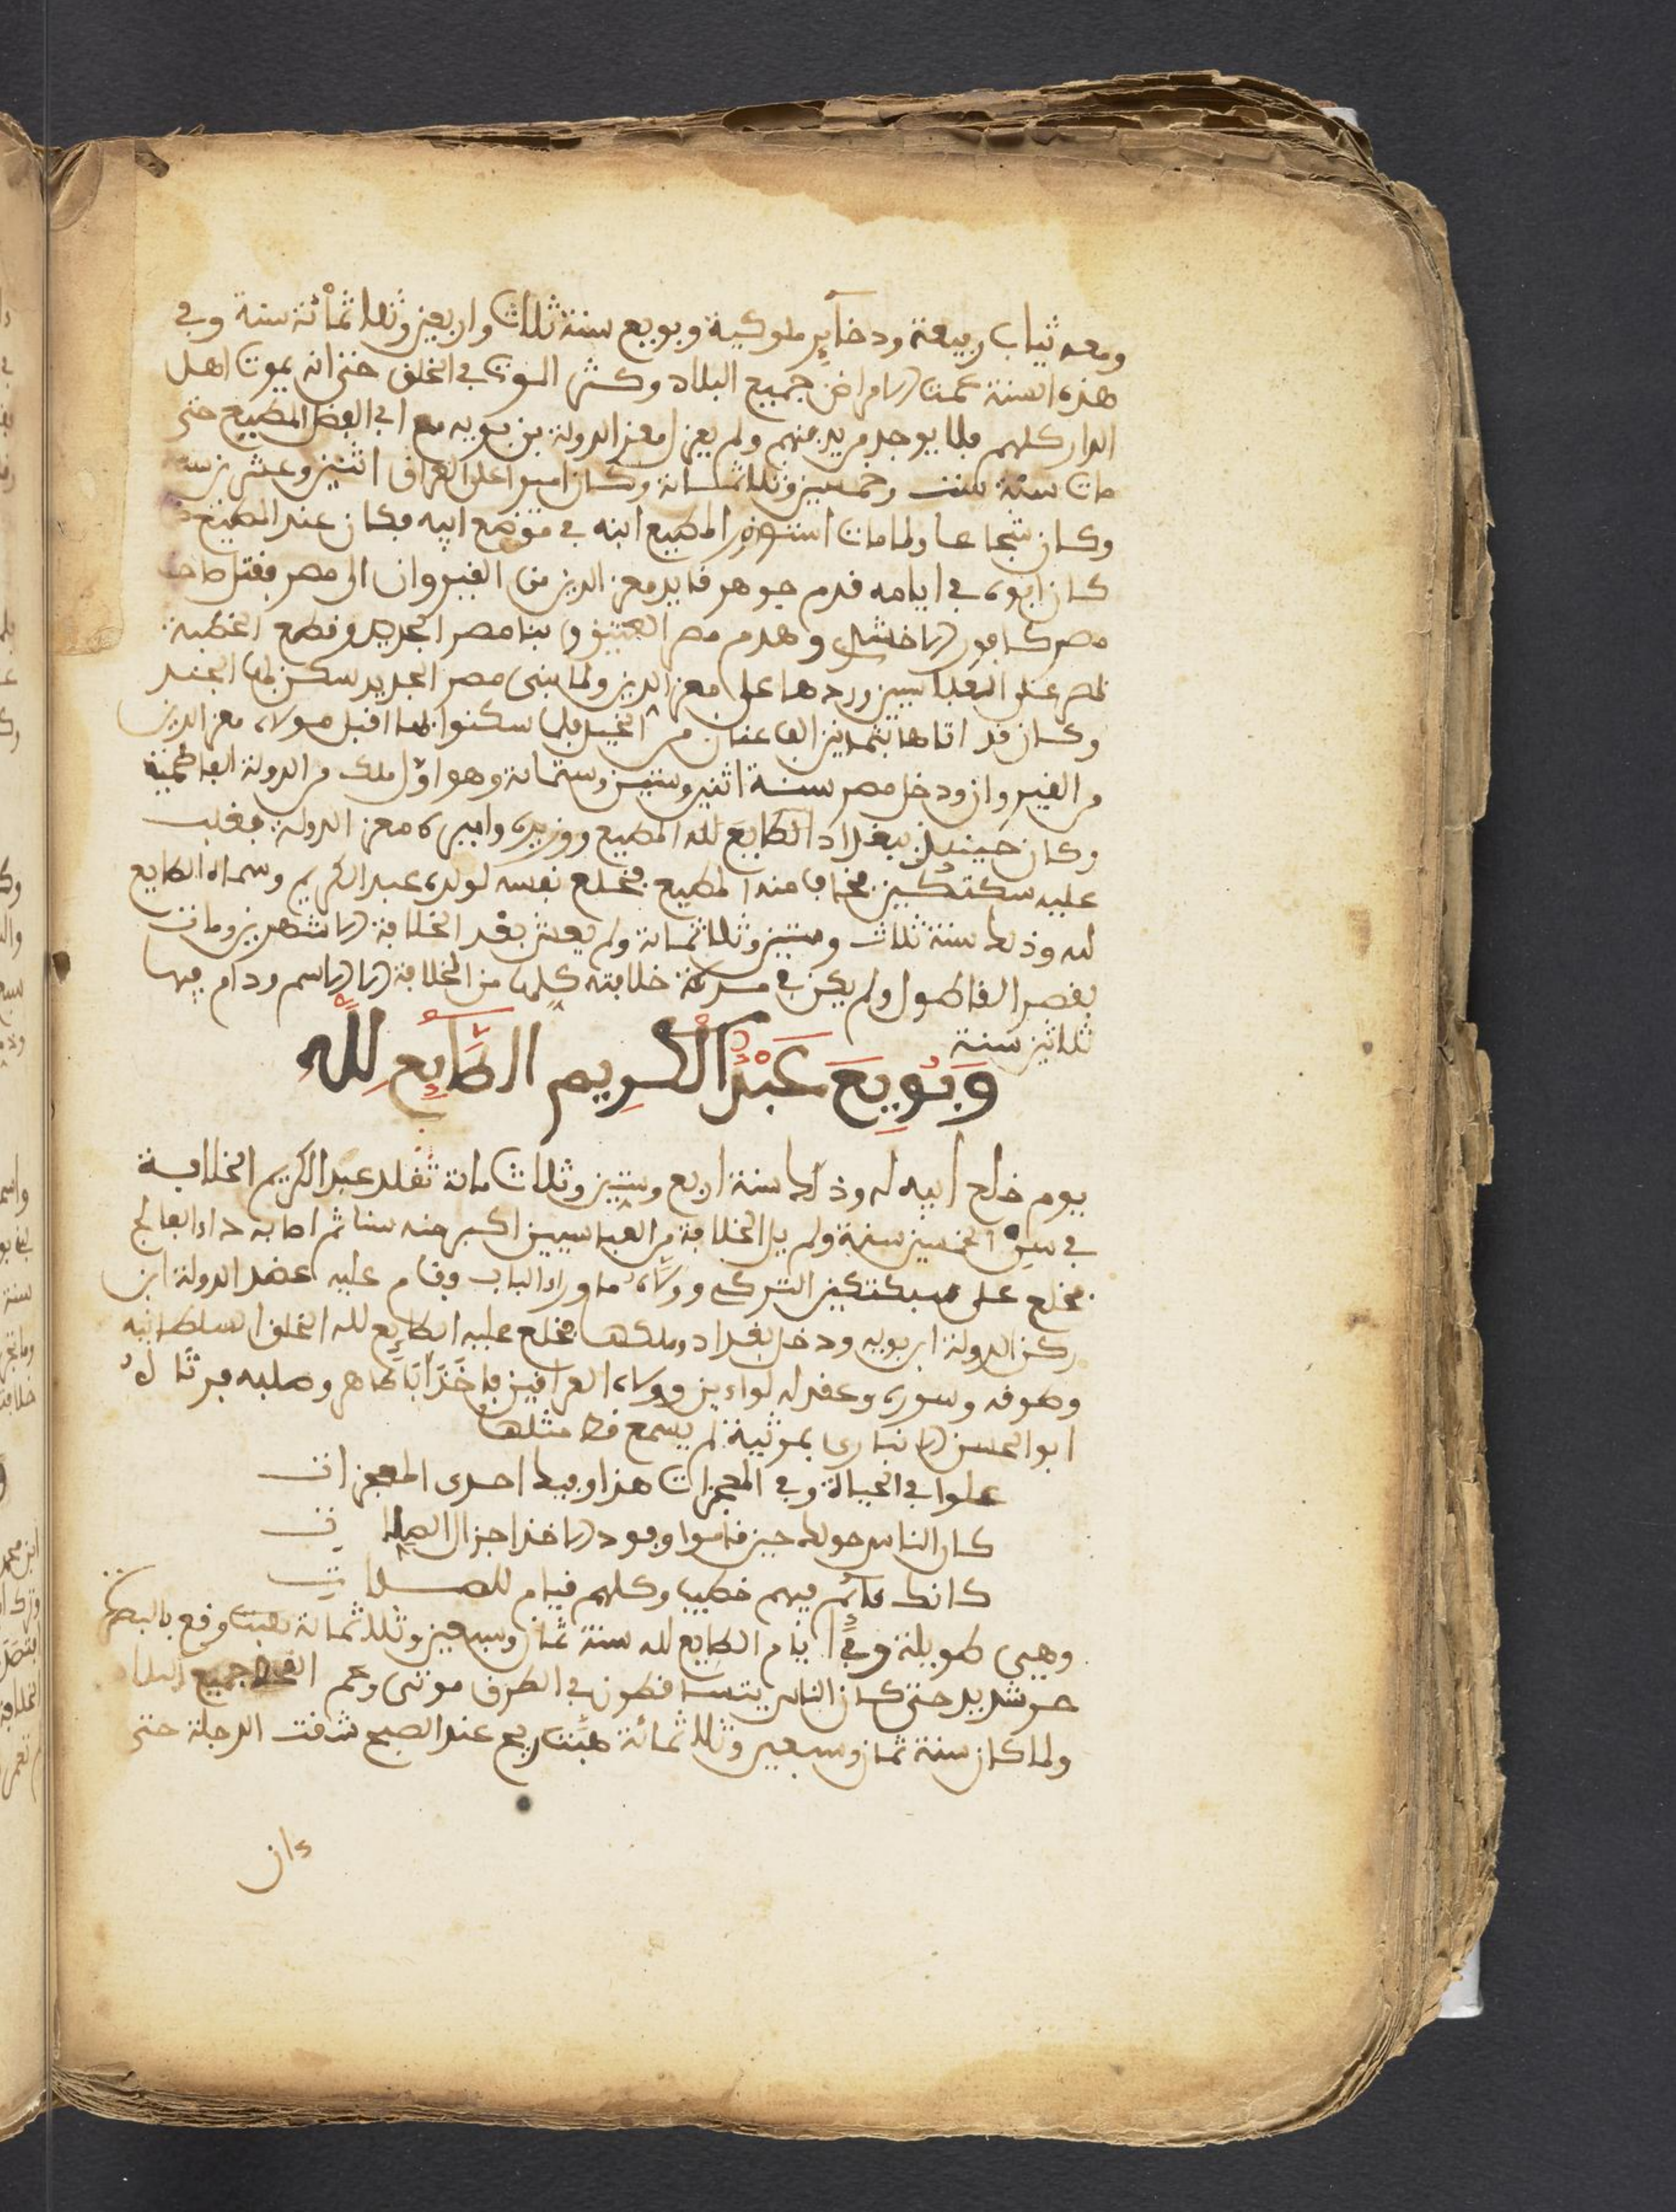 ومعه ثياب رفيعة ودخاير ملوكية وبويع سنة ثلاث واربعين وثلاثمائة سنة وفي
هذه السنة عمت الامراض جميع البلاد وكثر الموت في الخلق حتى انه يموت اهل
الدار كلهم فلا يوجد من يدفنهم ولم يعزل معز الدولة بن بويه مع ابي الفضل المطيع حتى
مات سنة ست وخمسين وثلاثمائة وكان اميرا على العراق اثنين وعشرين سنة
وكان شجاعا ولما مات استوزر المطيع ابنه في موضع ابيه فكان عند المطيع
كان ابوه في ايامه قدم جوهر قايد معز الدين من القيروان الى مصر فقتل صاحب
مصر كافور الاخشيد وهدم مصر العتيق وبنا مصر الجديد وقطع الخطبة
بمصر عند العباسيين وردها على معز الدين ولما بنى مصر الجديد سكن بها الجند
وكان قد اتاها بثمانين الف عنان من الخيل فلما سكنوا بها اقبل مولاه معز الدين
من القيروان ودخل مصر سنة اثنين وستين وستمائة وهو اول ملك من الدولة الفاطمية
وكان حينيذ ببغداد الطايع لله المطيع ووزيره واميره معز الدولة فغلب
عليه سكتكين فخاف منه المطيع فخلع نفسه لولده عبد الكريم وسماه الطايع
لله وذلك سنة ثلاث وستين وثلاثمائة ولم يعش بعد الخلافة الا شهرين ومات
بقصر الفاطول ولم يكن في مدة خلافته كلها من الخلافة الا الاسم ودام فيها
ثلاثين سنة
وبويع عبد الكريم الطايع لله
يوم خلع ابيه له وذلك سنة اربع وستين وثلاث مائة تقلد عبد الكريم الخلافة
في سن الخمسين سنة ولم يل الخلافة من العباسيين اكبر منه سنا ثم اصابه داء الفالج
فخلع على سبكتكين التركي وولاه ما وراء الباب وقام عليه عضد الدولة ابن
ركن الدولة ابن بويه ودخل بغداد وملكها فخلع عليه الطايع لله الخلع السلطانية
وطوقه وسوره وعقد له لواءين وولاه العراقين فاخذ ابا طاهر وصلبه فرثا له
ابو الحسن الانباري بمرثية لم يسمع قط مثلها
علوا في الحياة وفي الممات هذا وفيك احدى المعجزات
كان الناس حولك حين قاموا وفود الاخذ اجزال الصلات
كانك قائم فيهم خطيب وكلهم قيام للصلات
وهي طويلة وفي ايام الطايع لله سنة ثمان وسبعين وثلاثمائة وقع بالبصرة
حر شديد حتى كان الناس يتساقطون في الطرق موتى وعم القحط جميع البلاد
ولما كان سنة ثمان وسبعين وثلاثمائة هبت ريح عند الصبح شقت الدجلة حتى
كان